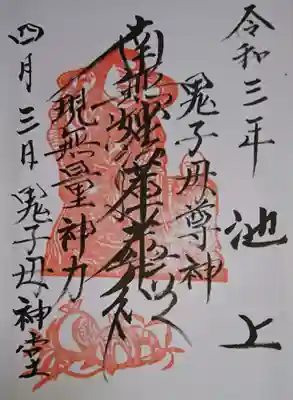 令和三年
池上
鬼子母尊神
南無妙法蓮華経
現無量神力
四月三日
鬼子母神堂